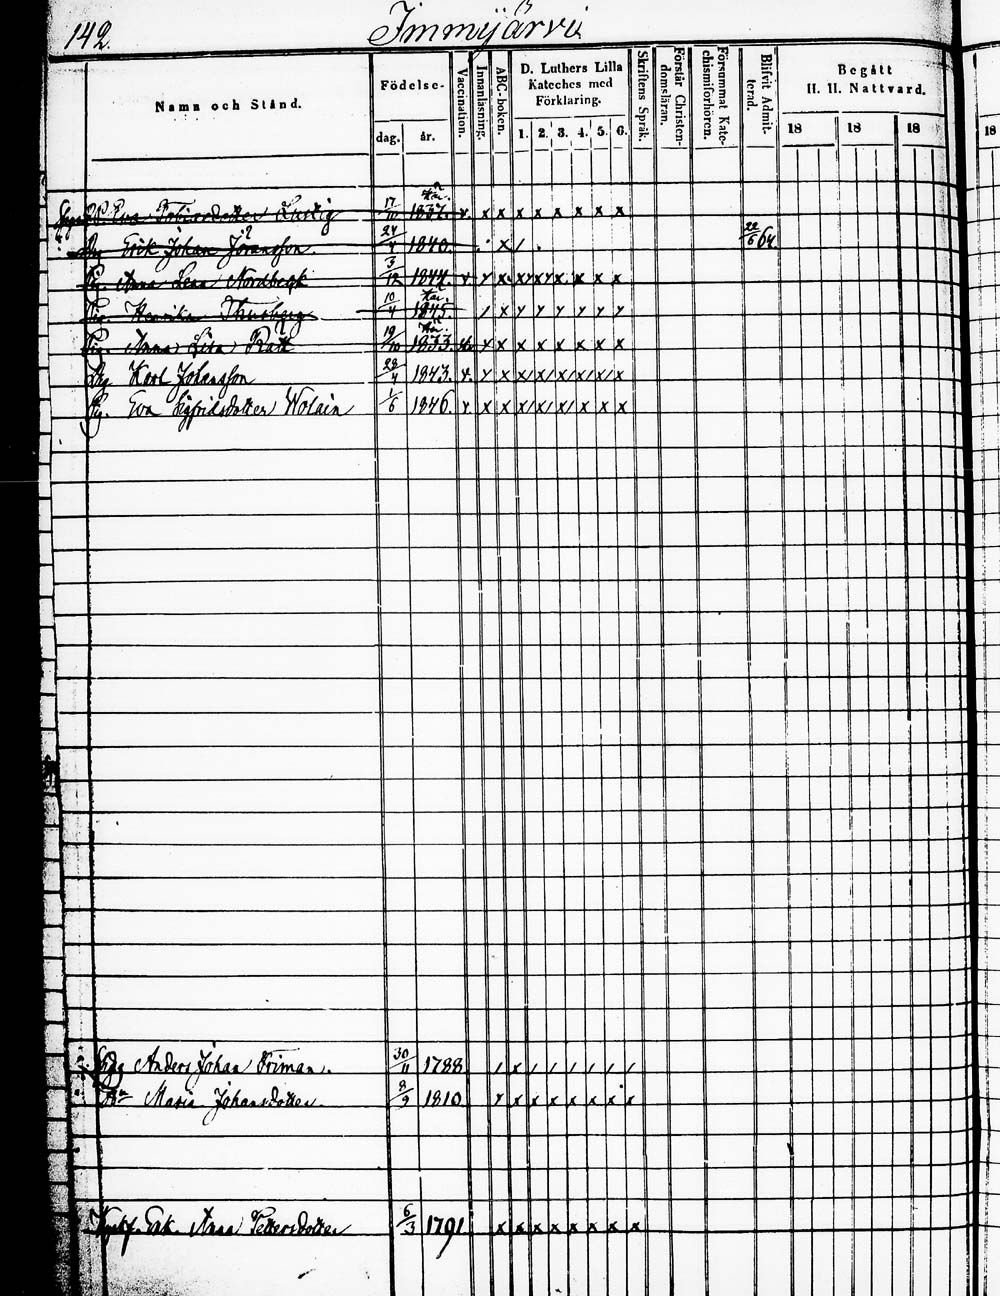 142. Immijärvi
Namn och Stånd.
Födelse-
dag. år.
Vaccination.
Innanläsning.
ABC-boken.
D. Luthers Lilla
Kateches med
Förklaring.
1. 2. 3. 4. 5. 6.
Skriftens Språk.
Förstår Christen-
domsläran.
Försummat Kate-
chismiförhören.
Blifvit Admit-
terad.
Begått
H. H. Nattvard.
18 18 18 18
Eva Lustig 17/10 1837. v. x x x x x x x x
Erik Johan Göransson. 24/4 1840. x / 22/6 64
Pig. Anna Lena Nordberg 3/12 1844. v.
Pig. Henrika 10/4 1845. / x y y y y y y
Pig. Anna Lisa Rätt 19/10 1833.
Dg Karl Johansson 28/4 1843. v. y x x/ x/ x/ x/ x/ x
Pig. Eva Sigfridsdotter 1/6 1846. v. x x x/ x/ x/ x x x
Anders Johan Friman. 30/11 1788 / x / / / / / /
Maria Johansdotter 8/9 1810 y x x x x x x x
Enk. Anna Pettersdotter 6/3 1791. x x x x x x x x